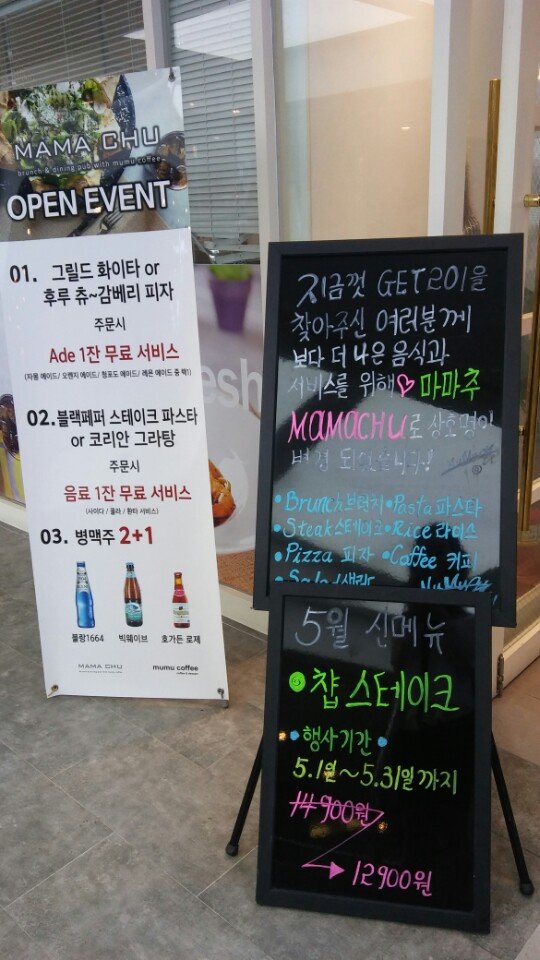 MAMA CHU
brunch & dining pub with mumu coffee
OPEN EVENT
01. 그릴드 화이타 or
후루 츄~감베리 피자
주문시
Ade 1잔 무료 서비스
(자몽 에이드/ 오렌지 에이드/ 청포도 에이드/ 레몬 에이드 중 택1)
02.블랙페퍼 스테이크 파스타
or 코리안 그라탕
주문시
음료 1잔 무료 서비스
(사이다 / 콜라 / 환타 서비스)
03. 병맥주 2+1
블랑1664
빅웨이브
호가든 로제
MAMA CHU
mumu coffee
esh
지금껏 GET201을
찾아주신 여러분께
보다 더 나은 음식과
서비스를 위해♡ 마마추
MAMACHU로 상호명이
변경 되었습니다!
•Brunch브런치 •Pasta파스타
•Steak스테이크 •Rice 라이스
•Pizza 피자 •Coffee 커피
•Salad샐러
5월 신메뉴
챱 스테이크
•행사기간•
5.1일~5.31일까지
14900원
12900원